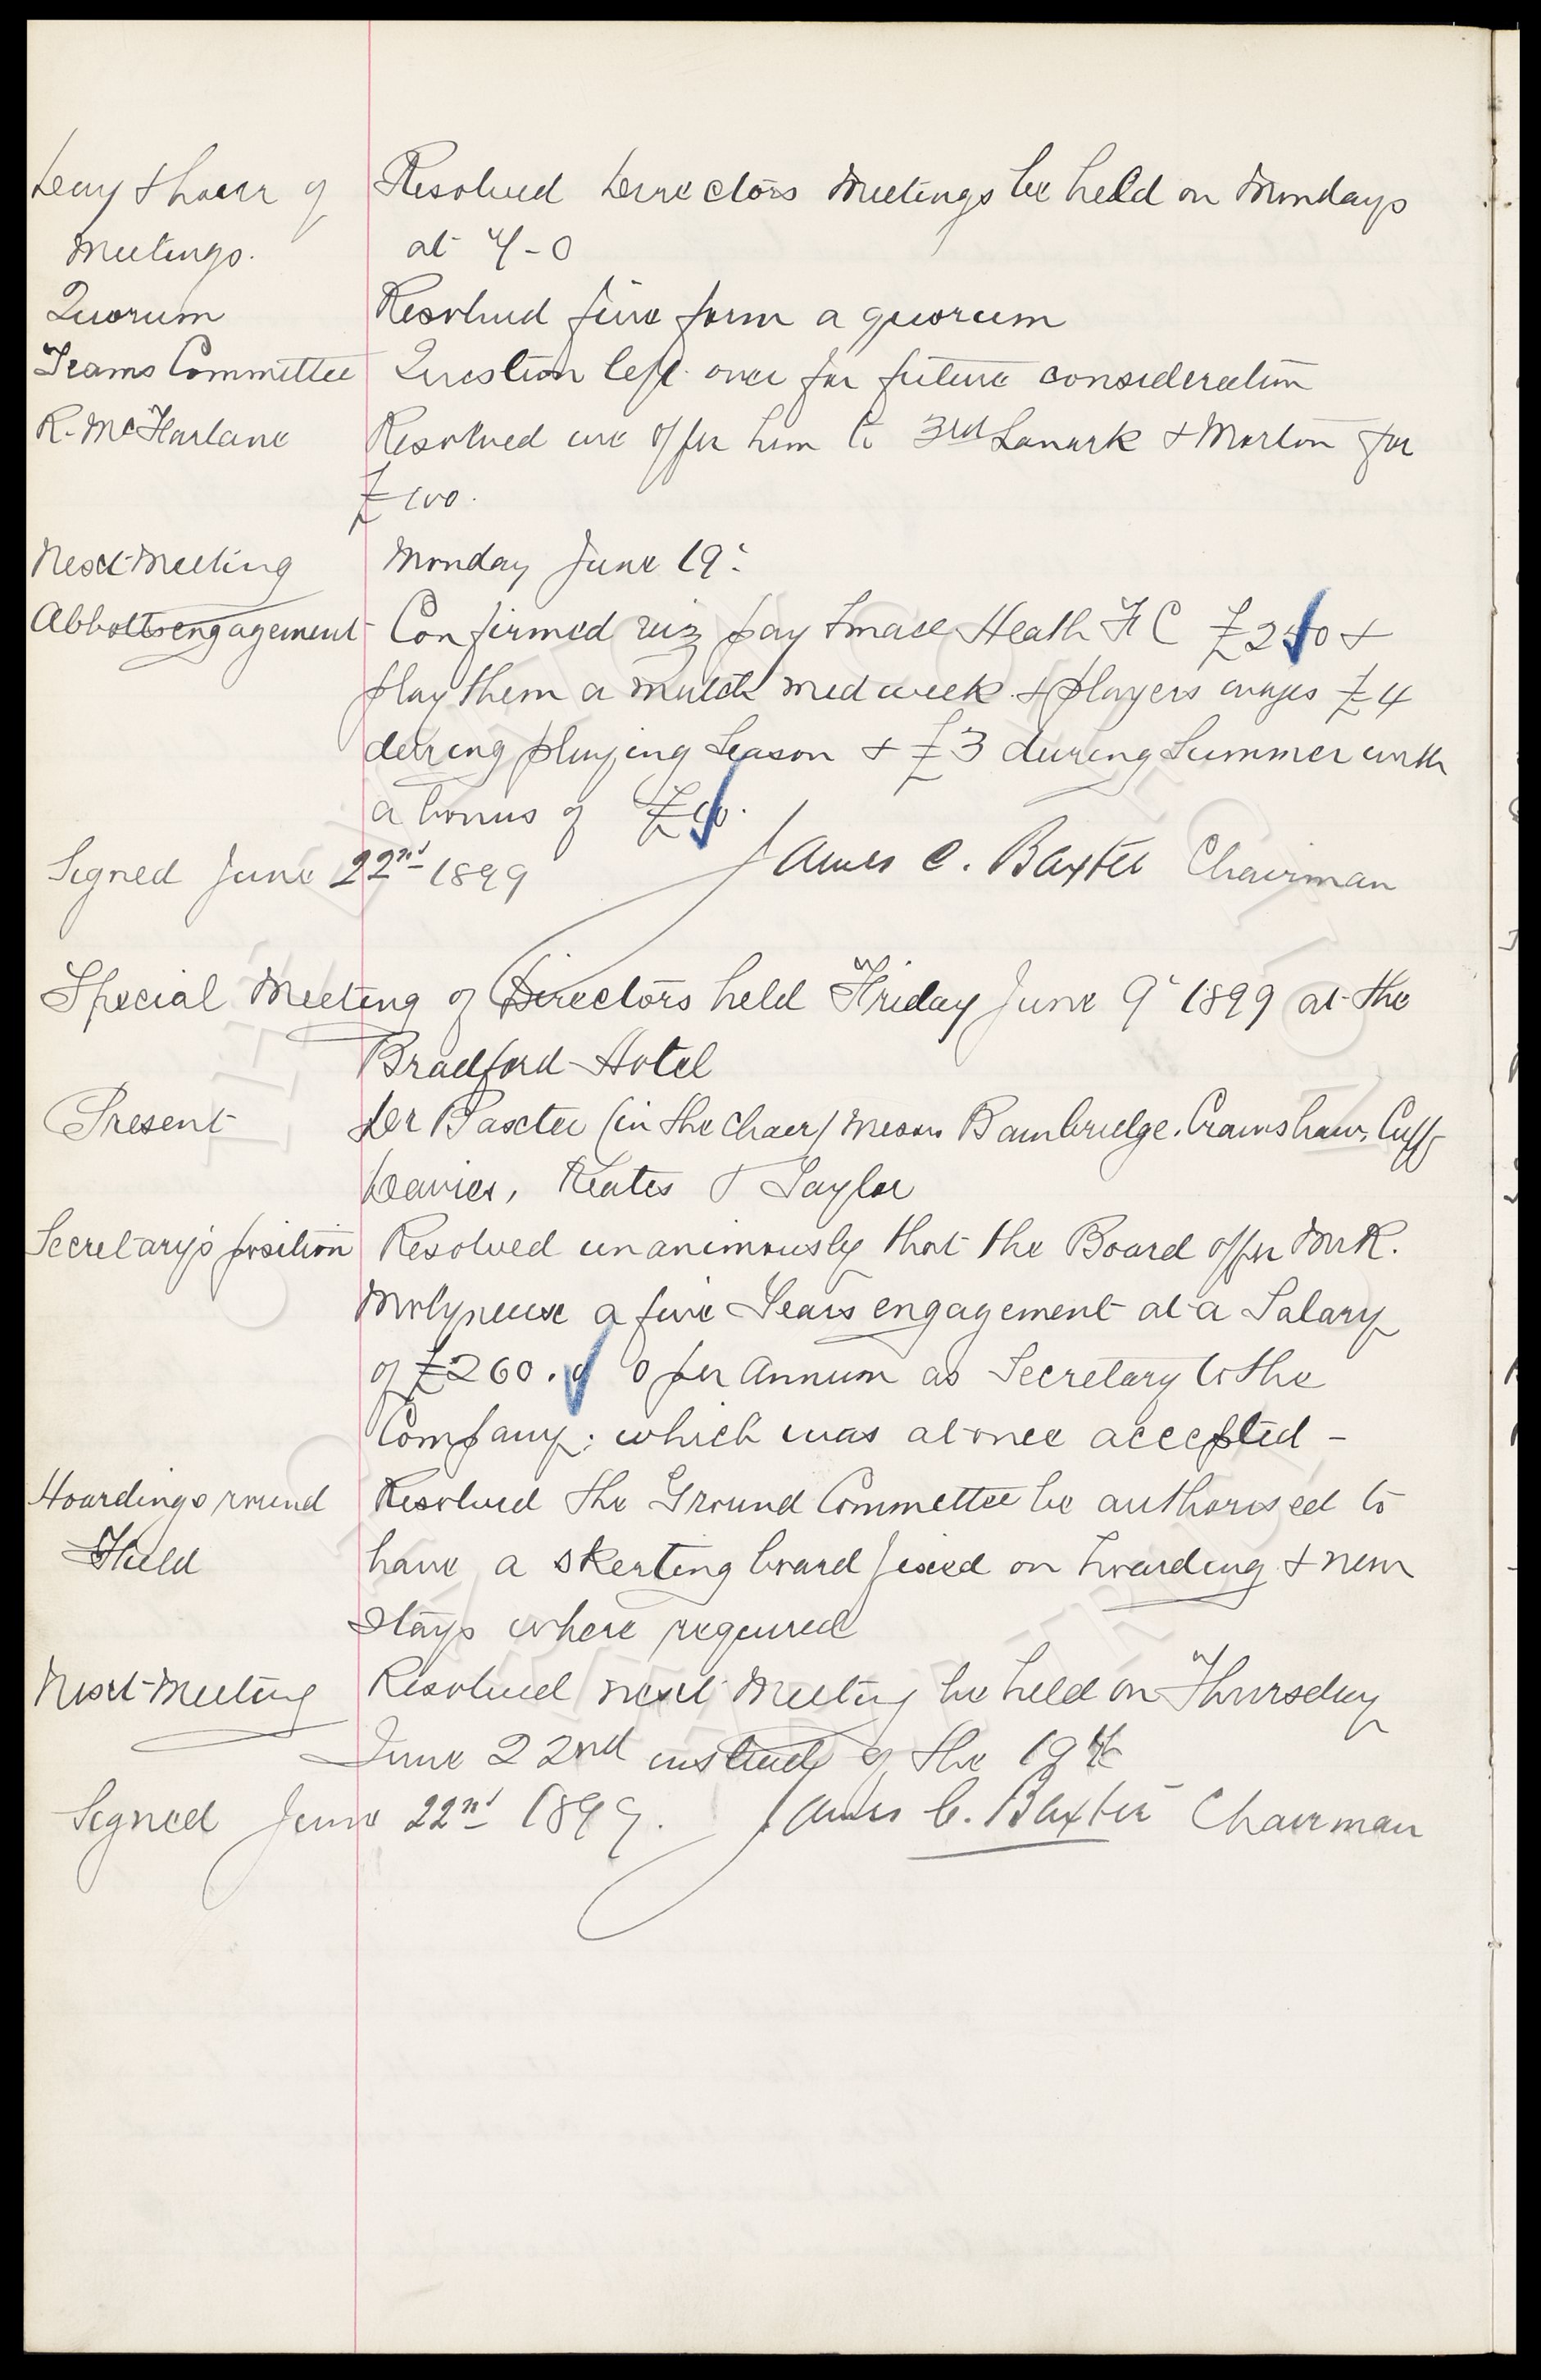 Day & hour of Resolved Directors Meetings be held on Mondays
Meetings. at 7-0
Quorum Resolved five form a quorum
Teams Committee Question left over for future consideration
R. McFarlane Resolved we offer him to 3rd Lanark & Morton for
£100.
Next Meeting Monday June 19:
Abbotts engagement Confirmed viz pay Small Heath F C £2 0 &
play them a match mid week & players wages £4
during playing Season & £3 during Summer with
a bonus of
Signed June 22nd 1899 James C. Baxter Chairman
Special Meeting of Directors held Friday June 9th 1899 at the
Bradford Hotel
Present Dr Baxter (in the chair) Messrs Bainbridge, Crawshaw, Cuff
Davies, Keates & Taylor
Secretary's position Resolved unanimously that the Board offer Mr R.
Molyneux a five Years engagement at a Salary
of £260. 0 0 per Annum as Secretary to the
Company; which was at once accepted -
Hoardings round Resolved the Ground Committee be authorised to
Field have a skerting board fixed on hoarding & new
stays where required
Next Meeting Resolved next Meeting be held on Thursday
June 22nd instead of the 19th
Signed June 22nd 1899. James C. Baxter Chairman